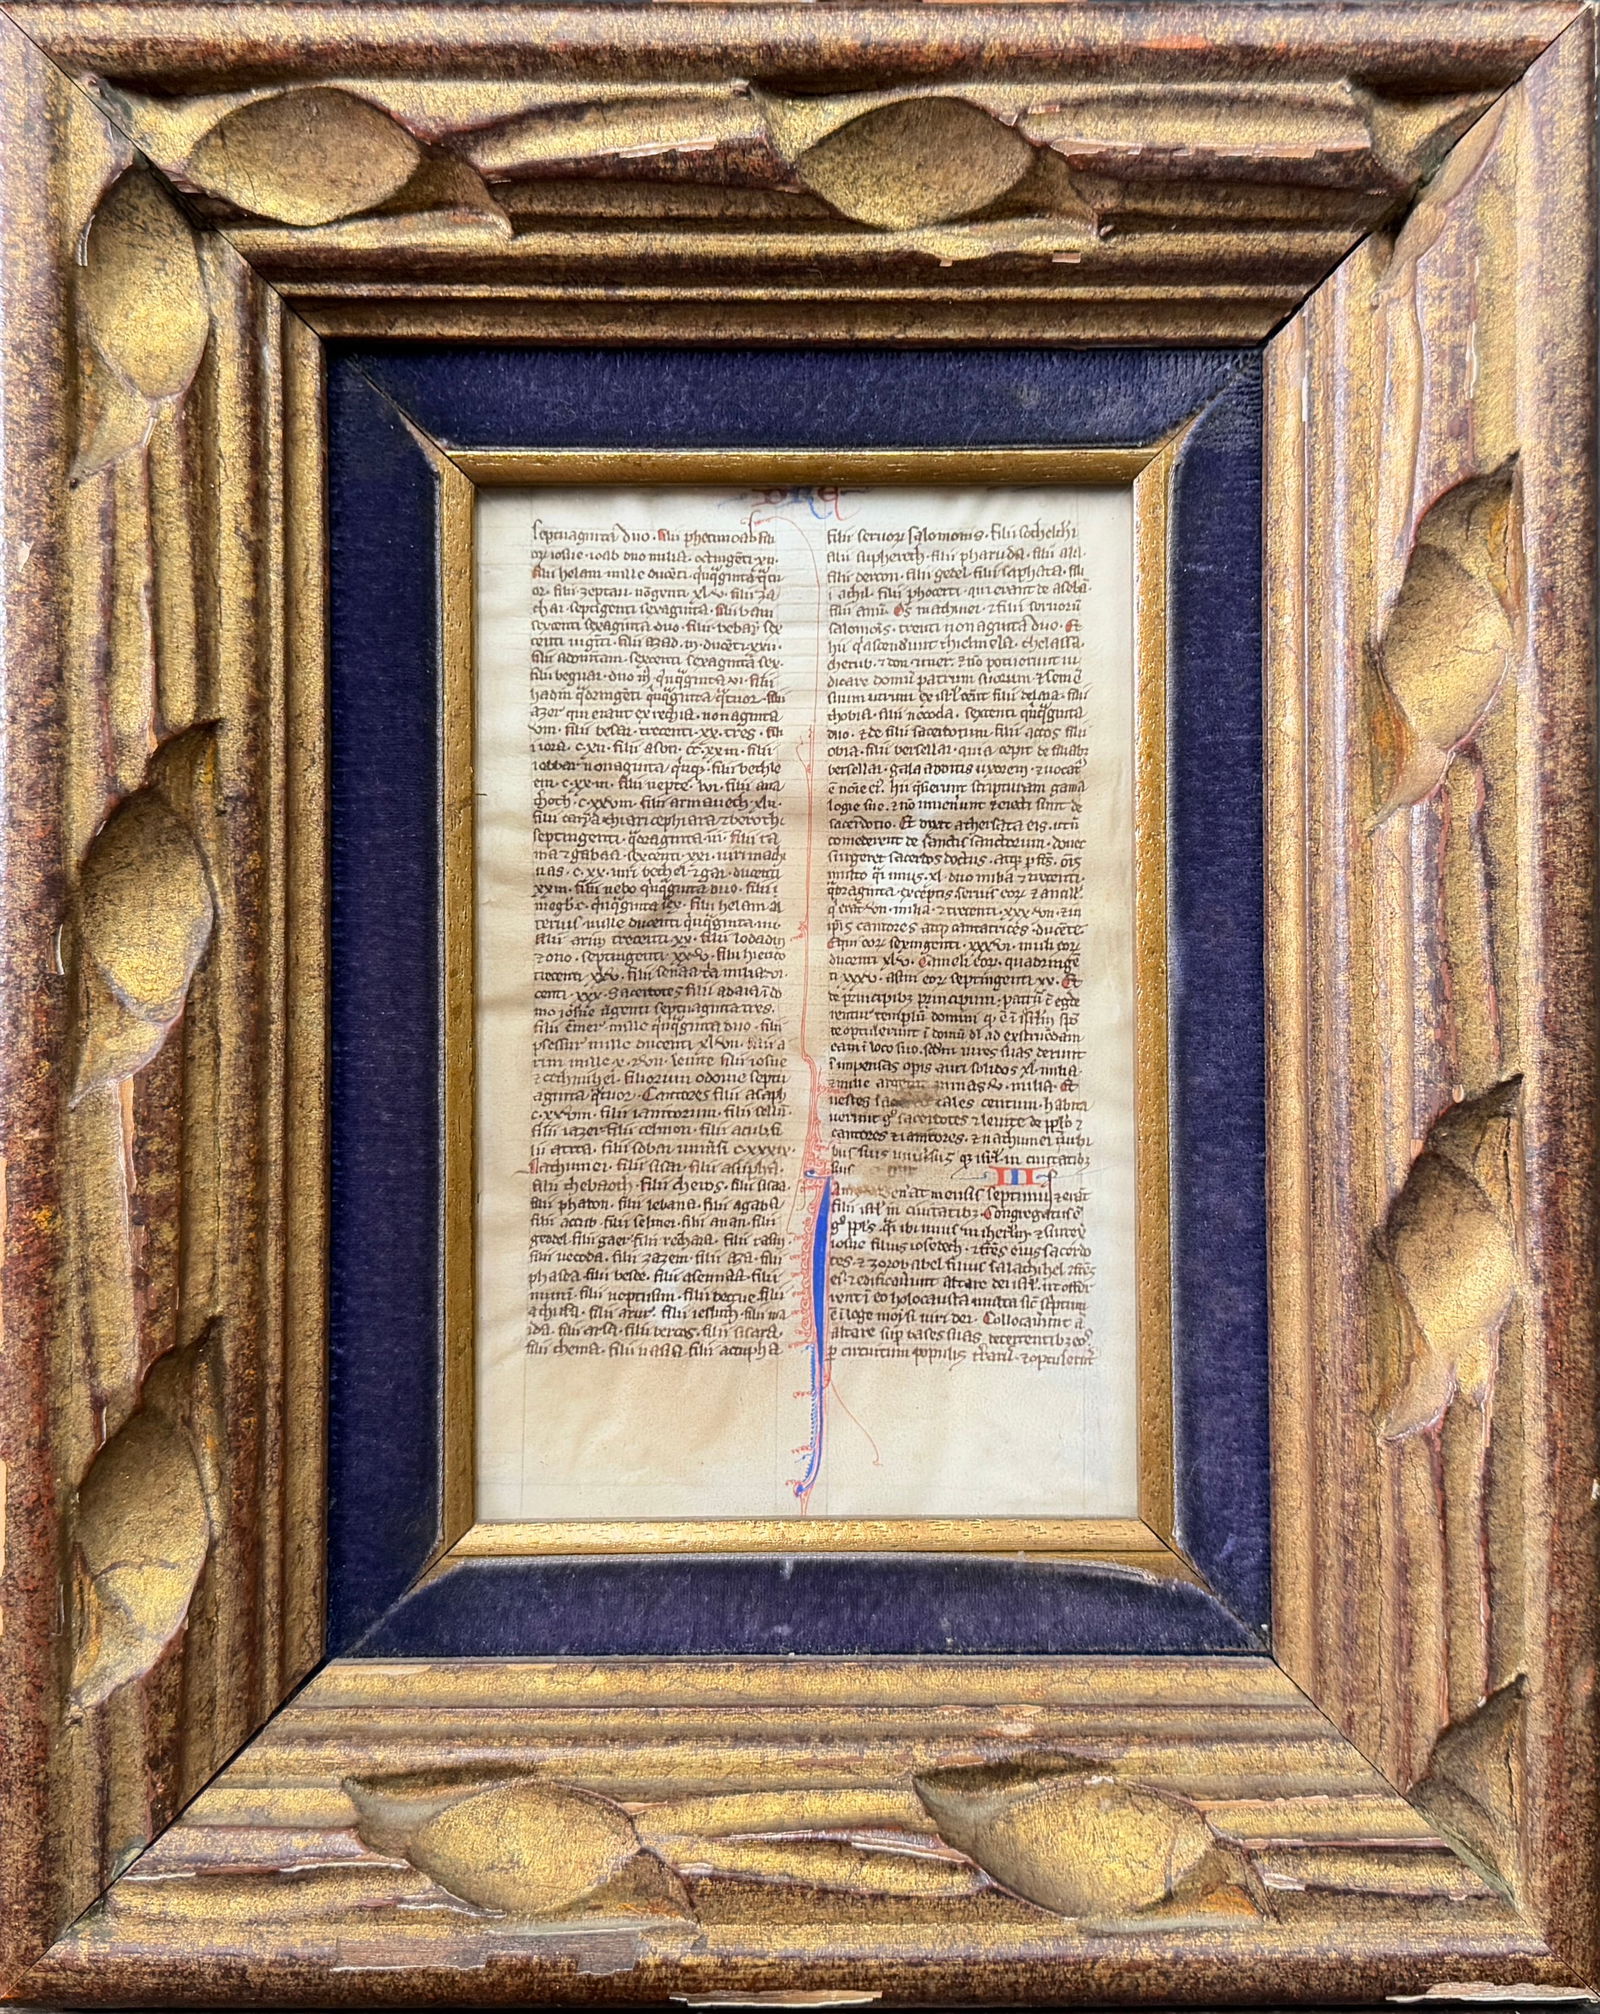 DRE
septuaginta duo. filii phetmoab fili
or iosue. ioab duo milia. octingēti xii.
filii helam. mille ducēti. q̄nq̄ginta q̄tu
or. filii zeptan. nōgenti xlv. filii za
chai. septigenti sexaginta. filii bani
sexcenti sexaginta duo. filii bebai. sex
centi uigīti. filii azad. m. ducēti. xxii.
filii adonicam. sexcenti sexaginta sex.
filii beguai. duo m̄. q̄nq̄ginta vi. filii
hadin q̄dringēti q̄nq̄ginta q̄tuor. filii
azer qui erant ex iechia. nonaginta
viii. filii besai. trecenti. xx. tres. filii
iora. c. xii. filii ason. cc. xxiii. filii
iebbar nonaginta q̄nq̄. filii bethle
em. c. xx. iii. filii nepte. lvi. filii ana
thoth. c. xxviii. filii armaueth. xlii.
filii cariathiari cephiara et beroth
septingenti. q̄draginta iii. filii ra
ma et gabaa. sexcenti. xxi. uiri mach
mas. c. xx. uiri bethel et gai. ducenti
xxiii. filii nebo q̄nq̄ginta duo. filii
megbis. c. q̄nq̄ginta sex. filii helam al
terius mille ducenti q̄nq̄ginta iiii.
filii arim trecenti xx. filii lodadid
et ono. septingenti xxv. filii hierico
trecenti xlv. filii senaa tria milia sex
centi. xxx. Sacerdotes filii adaia ī do
mo iosue nōgenti septuaginta tres.
filii emer mille q̄nq̄ginta duo. filii
phessur mille ducenti xlvii. filii a
rim mille x. et vii. leuite filii iosue
et cethmihel. filiorum odouie septu
aginta q̄tuor. Cantores filii asaph
c. xxviii. filii ianitorum. filii sellū
filii iazer filii telmon. filii acub. fi
lii atita. filii sobai uniuersi c. xxxix.
Nathinnei. filii siai. filii asupha.
filii thebaoth. filii cheros. filii siaa
filii phadon. filii lebana. filii agaba
filii accub. filii selmei. filii anan. filii
gedel filii gaer filii rechaia. filii rasin
filii necoda. filii zazem. filii aza. filii
phasda. filii besde. filii asennaa. filii
munī. filii neptusim. filii betcue. filii
achusa. filii azur. filii iesluth. filii ma
ida. filii arsa. filii bercos. filii sisara.
filii thema. filii nasia. filii acupha
filii seruor salomonis. filii sothelthi
filii suphereth. filii pharuda. filii ala
filii dercon. filii gedel. filii saphata. fili
i achil. filii phocetti. qui erant de asebā
filii amī. Oēs nathinei. et filii seruorū
salomōis. trecenti nonaginta duo. Et
hii q̄ ascendunt thelmela. thelassa.
cherub. et don. et mer. et nō potuerunt iu
dicare domū patrum suorum et semē
suum utrum ex isrl eēnt filii delaia. filii
thobia. filii nccoda. sexcenti q̄nq̄ginta
duo. et de filiis sacerdotum. filii accos. filii
obia. filii bersellai. qui accepit de filiab
bersellai. galaaditis uxorem. et uocat
ē noīe eor. hii quesierunt scripturam gene
logie sue. et nō inuenerunt et eiecti sunt de
sacerdotio. Et dixit athersata eis. ut nō
comederent de sanctis sanctorum. donec
surgeret sacerdos doctus. atq̄ p̄fēs. ōis
multo q̄si unus. xl. duo milia et trecenti.
q̄draginta. exceptis seruis eor et ancill.
q̄ erāt vii. milia. et trecenti. xxx. vii. et in
ip̄is cantores atq̄ cantatrices. ducēte
Equi eor sexingenti. xxxvi. muli eor
ducenti xlv. Cameli eor. quadringē
ti xxxv. asini eor septingenti xx. Et
de principibꝫ principum. patrū c̄ egde
rentur templū domini q̄ ē ī irlm spō
te optulerunt ī domū dī ad exstruēdam
eam ī loco suo. scdm uires suas derunt
ī impensas opis auri solidos xl. milia.
et mille argenti mnas v. milia. Et
uestes sacerdotales centum. habita
uerunt gͦ sacerdotes et leuite de pplo et
cantores et ianitores. et nathinei ī urbi
bus suis uniuersusq̄ isrl in ciuitatibꝫ
suis III
Iamq̄ uenerat mensis septimus et erāt
filii isrl in ciuitatibꝫ. Congregatus ē
gͦ ppls. q̄si ibi unus in iherlm et surrex
iosue filius iosedech. et fr̄es eius sacerdo
tes. et zorobabel filius salathihel et fr̄es
ei et edificauerunt altare dei isrl. ut offer
rent ī eo holocausta mlta sic̄ sc̄ptum
ē ī lege moysi uiri dei. Collocauerunt ā
altare sup bases suas. deterrentibꝫ eos
p circuitum populis t̄rarum. et optulerunt